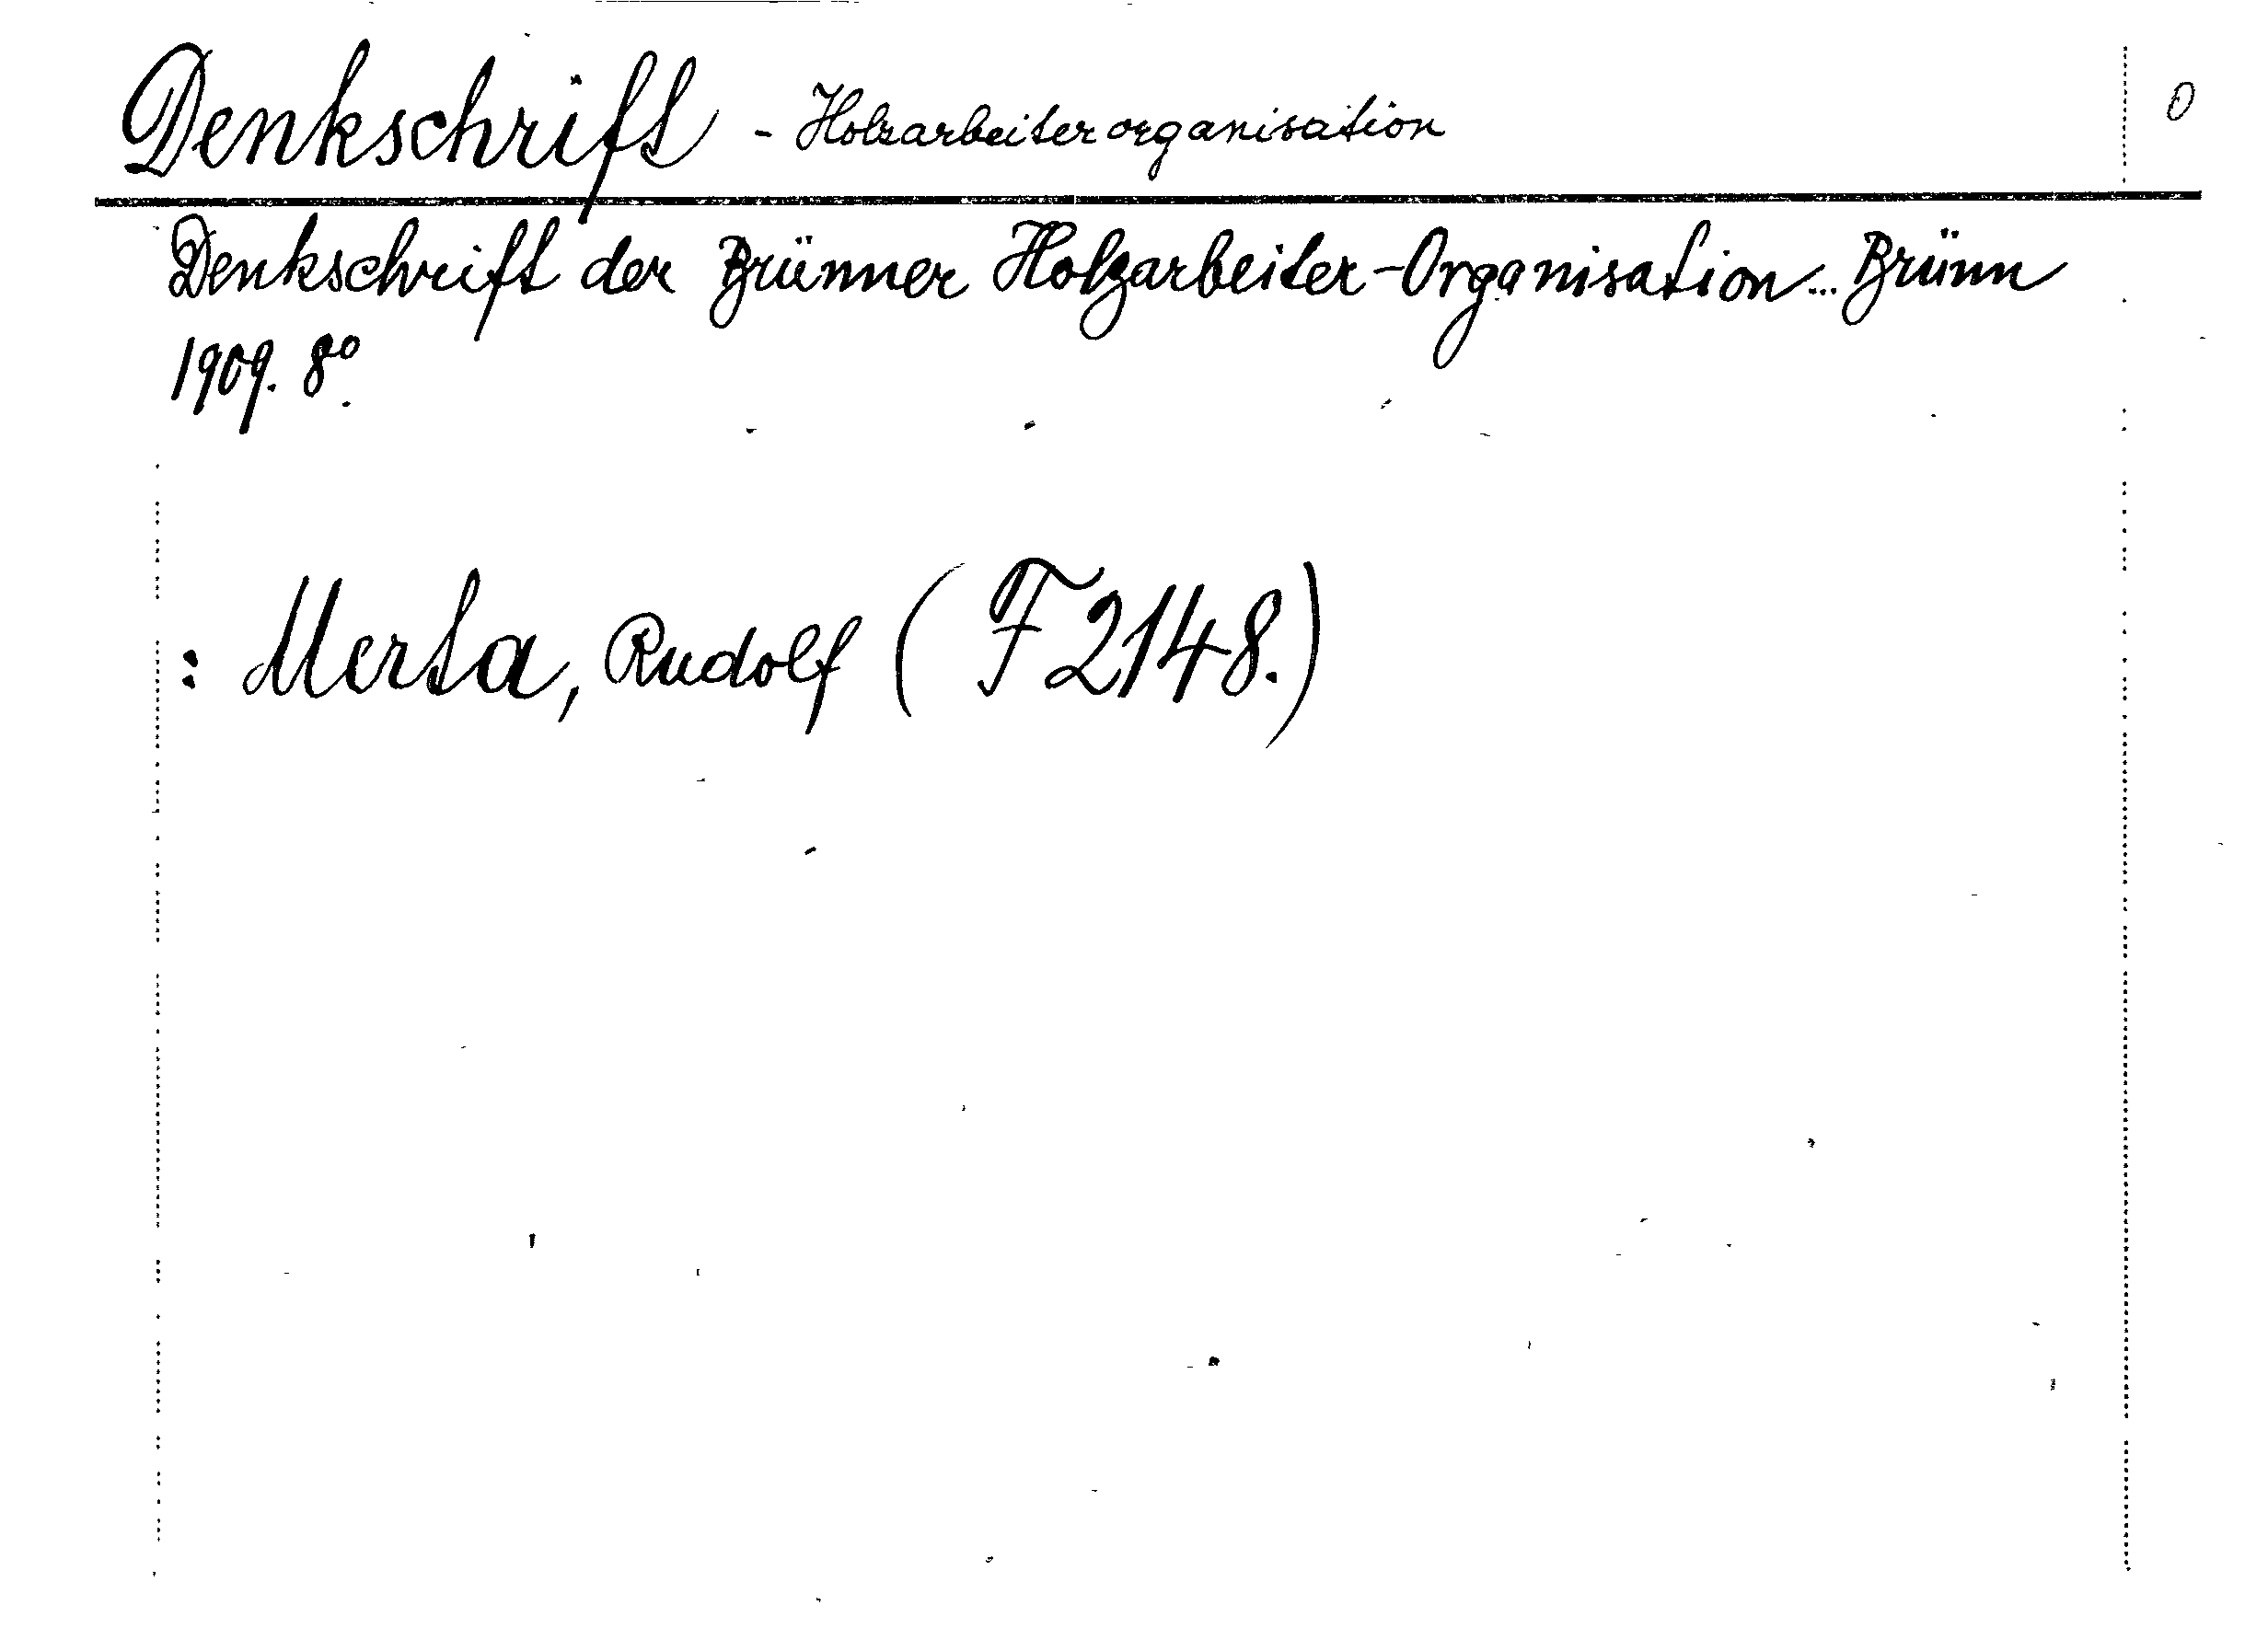 Denkschrift - Holzarbeiterorganisation 0
Denkschrift der Brünner Holzarbeiter-Organisation... Brünn
1909. 8º.
: Merta, Rudolf (F 2148.)